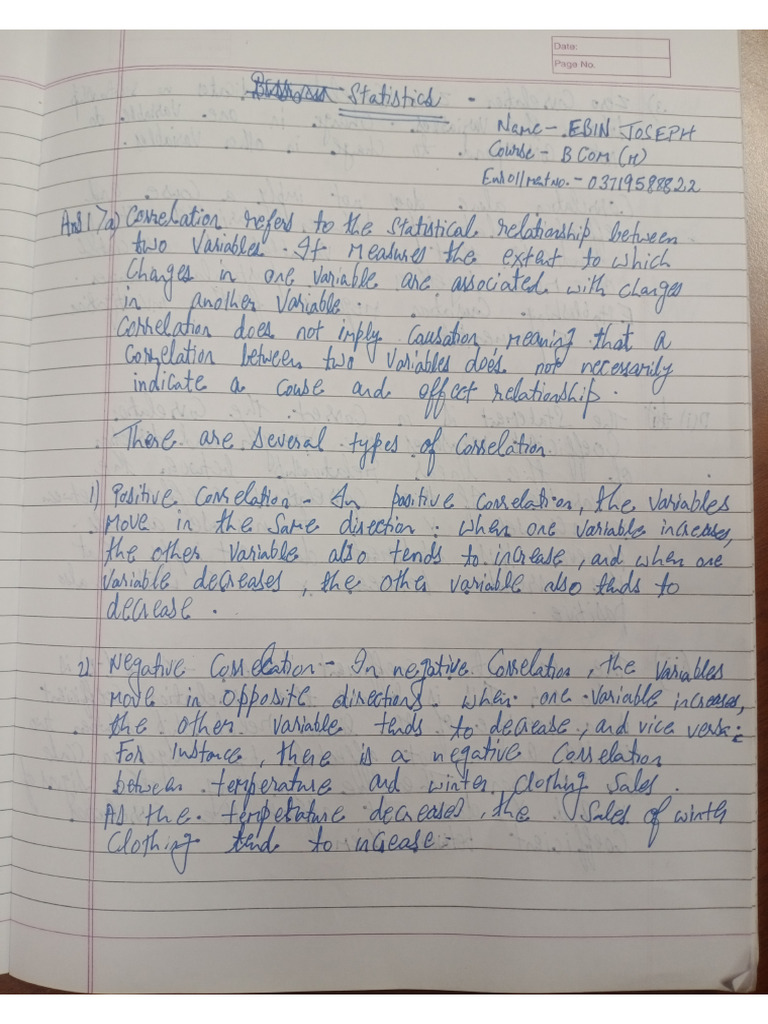 Date:
Page No.
Statistics
Name - EBIN JOSEPH
Course - B COM (H)
Enrollment no. - 03719588822
Ans 1 7a) Correlation refers to the statistical relationship between
two variables. It measures the extent to which
changes in one variable are associated with changes
in another variable.
Correlation does not imply causation, meaning that a
correlation between two variables does not necessarily
indicate a couse and effect relationship.
There are several types of correlation.
1) Positive correlation - In positive correlation, the variables
move in the same direction. when one variable increases,
the other variable also tends to increase, and when one
variable decreases, the other variable also tends to
decrease.
2) Negative Correlation - In negative Correlation, the variables
move in opposite directions. when one variable increases,
the other variable tends to decrease, and vice versa.
For instance, there is a negative correlation
between temperature and winter clothing sales.
As the temperature decreases, the sales of winter
clothing tend to increase.